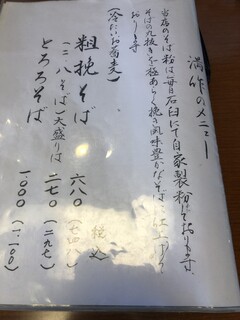 満作のメニュー
当店のそば粉は毎日石臼にて自家製粉しております。
そばの丸抜きを極あらく挽き風味豊かなそばに仕上げて
おります
(冷たいお蕎麦) 税込
粗挽そば 六八〇 (七四八)
(二八そば) 大盛りは 二七〇 (二九七)
とろろそば 一〇〇〇 (一、一〇〇)